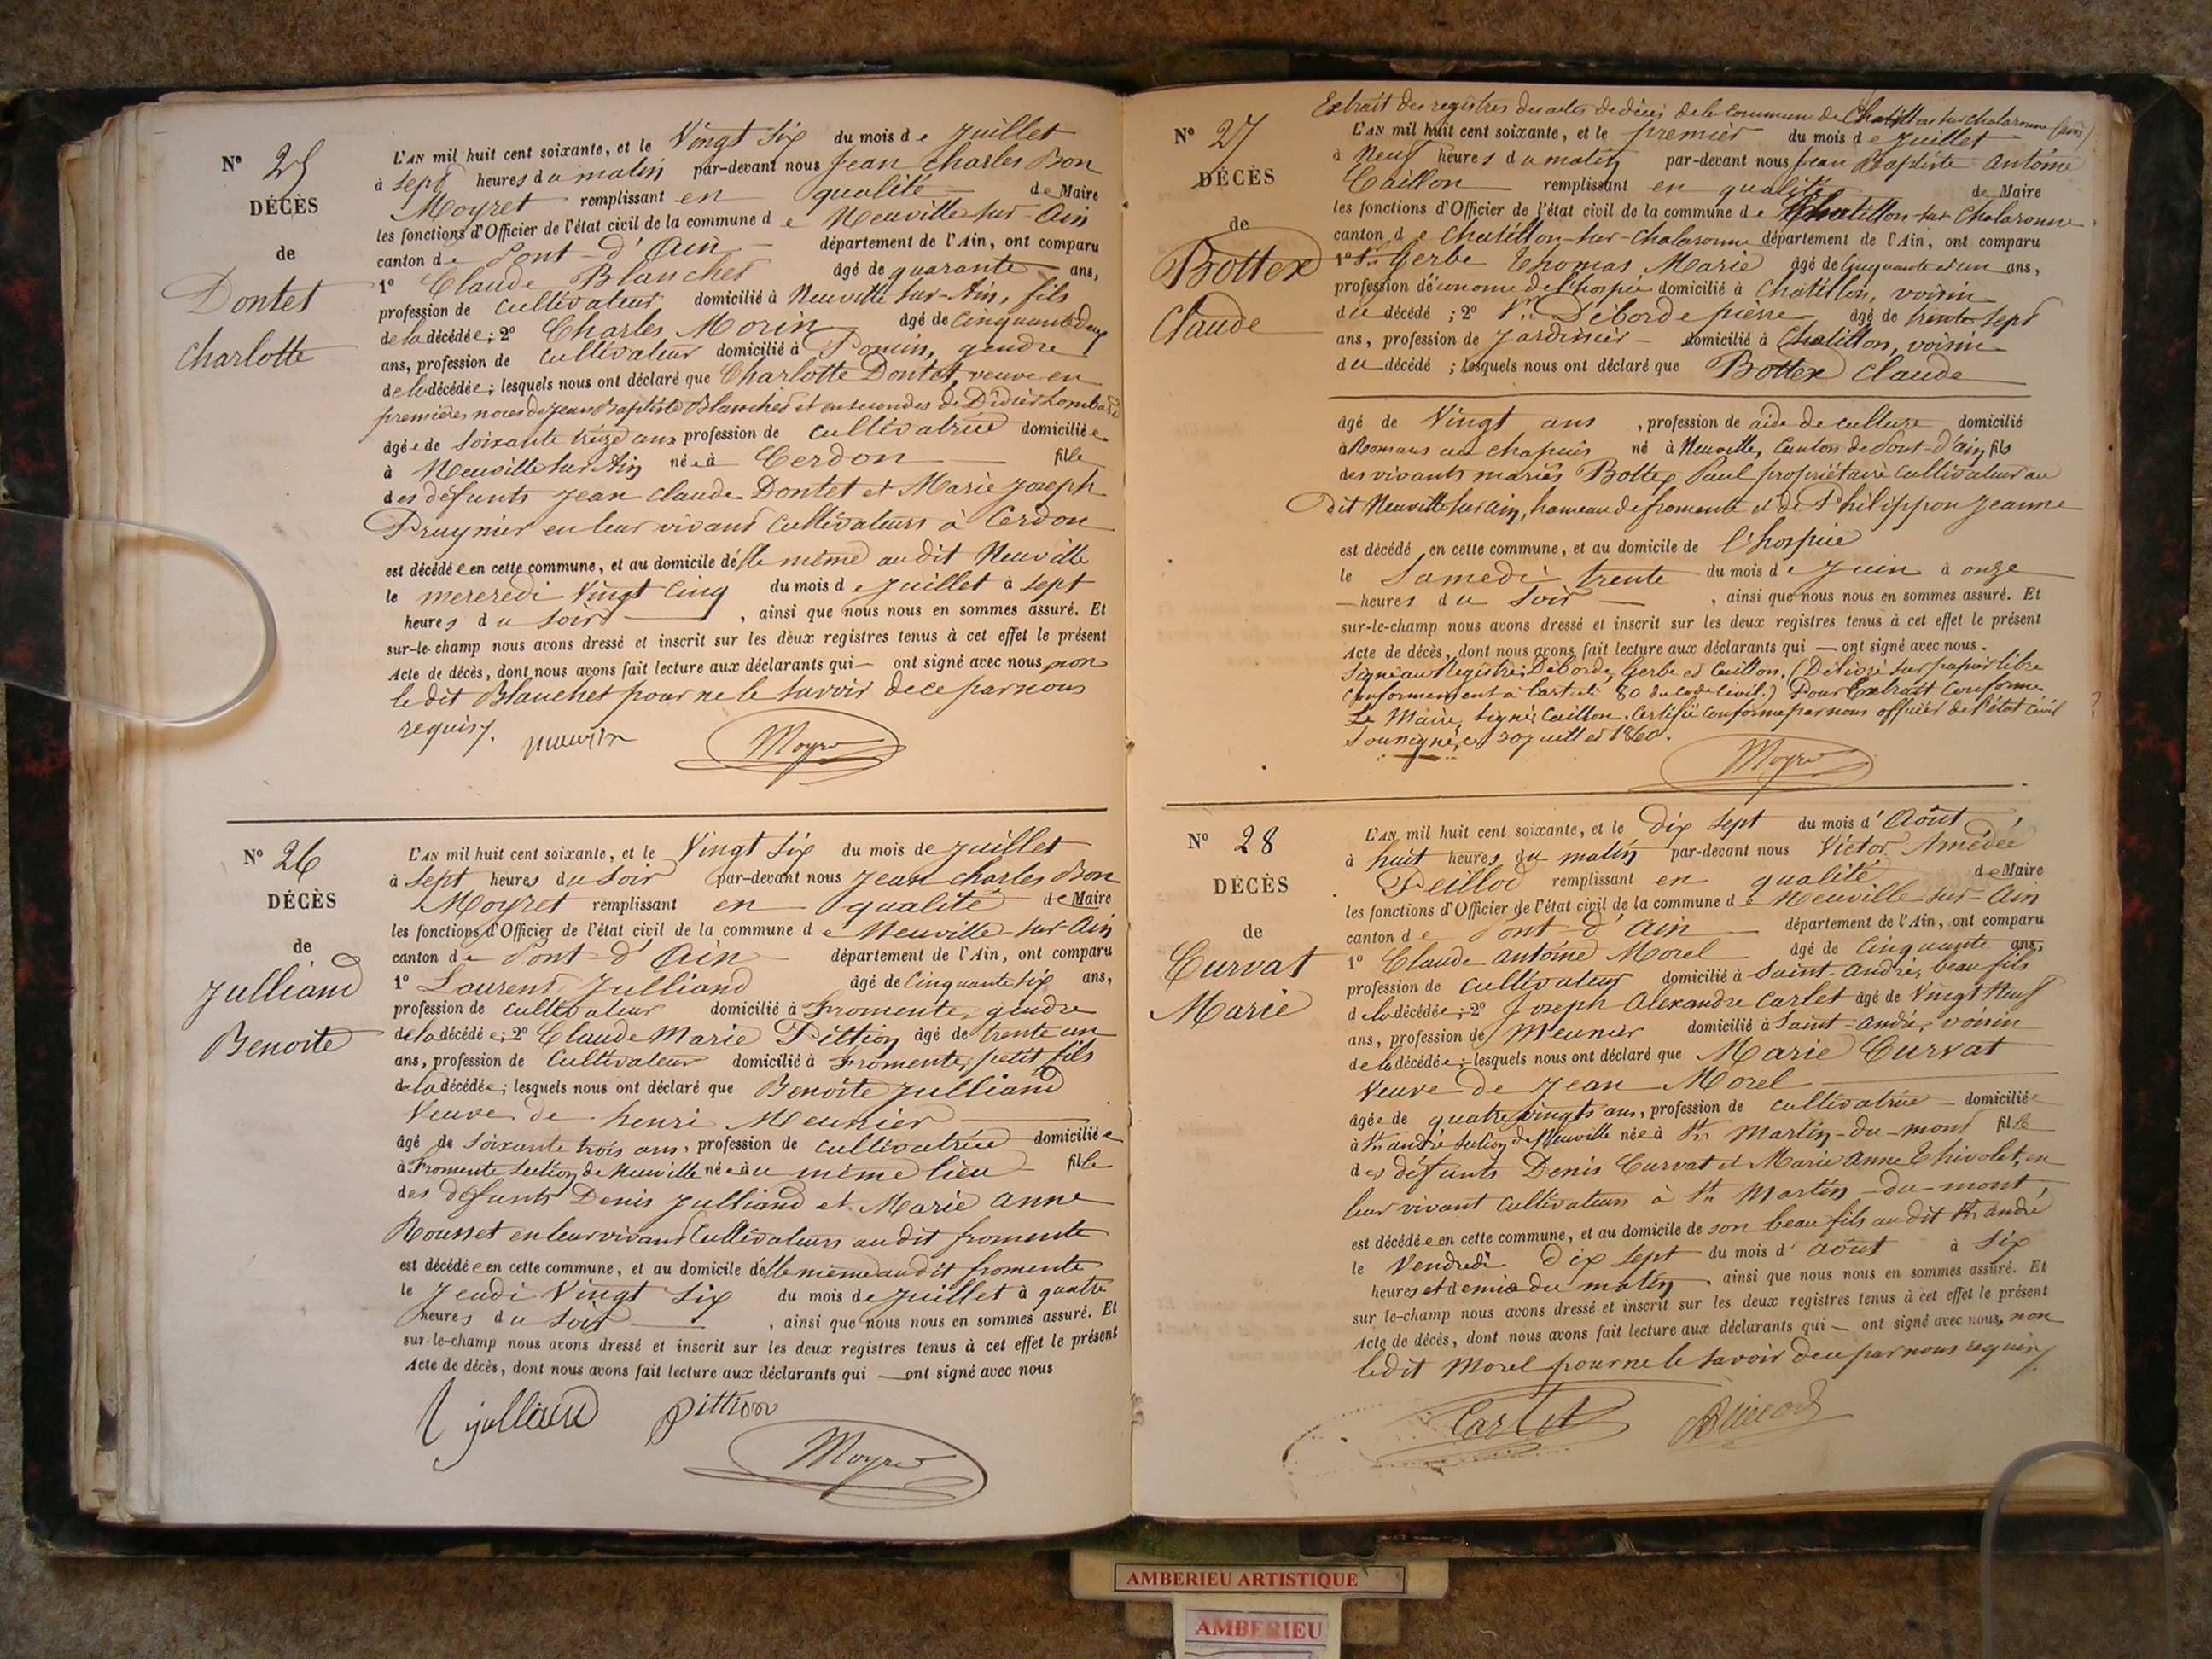 N° 25
DÉCÈS
de
Dontet
Charlotte
L'AN mil huit cent soixante, et le Vingt six du mois de Juillet
à sept heures du matin par-devant nous Jean Charles Bon
Moyret remplissant en qualité de Maire
les fonctions d'Officier de l'état civil de la commune de Neuville sur Ain
canton de Pont d'Ain département de l'Ain, ont comparu
1° Claude Blanchet âgé de quarante ans,
profession de cultivateur domicilié à Neuville sur Ain, fils
de la décédée; 2° Charles Morin âgé de Cinquante deux
ans, profession de cultivateur domicilié à Poncin, gendre
de la décédée; lesquels nous ont déclaré que Charlotte Dontet, veuve en
premières noces de Jean Baptiste Blanchet et en secondes de Didier Lombard
âgée de soixante treize ans profession de cultivatrice domiciliée
à Neuville sur Ain née à Cerdon fille
des défunts Jean Claude Dontet et Marie Joseph
Pruynier en leur vivant cultivateurs à Cerdon
est décédée en cette commune, et au domicile d'elle même au dit Neuville
le mercredi Vingt cinq du mois de Juillet à sept
heures du soir, ainsi que nous nous en sommes assuré. Et
sur-le-champ nous avons dressé et inscrit sur les deux registres tenus à cet effet le présent
Acte de décès, dont nous avons fait lecture aux déclarants qui — ont signé avec nous non
le dit Blanchet pour ne le savoir de ce par nous
requis.
Moyret
N° 26
DÉCÈS
de
Julliand
Benoite
L'AN mil huit cent soixante, et le Vingt six du mois de Juillet
à sept heures du soir par-devant nous Jean Charles Bon
Moyret remplissant en qualité de Maire
les fonctions d'Officier de l'état civil de la commune de Neuville sur Ain
canton de Pont d'Ain département de l'Ain, ont comparu
1° Laurent Julliand âgé de Cinquante six ans,
profession de cultivateur domicilié à Fromente, gendre
de la décédée; 2° Claude Marie Pittion âgé de trente un
ans, profession de Cultivateur domicilié à Fromente, petit fils
de la décédée; lesquels nous ont déclaré que Benoite Julliand
Veuve de henri Meunier
âgé de soixante trois ans, profession de cultivatrice domiciliée
à Fromente section de Neuville née au même lieu fille
des défunts Denis Julliand et Marie Anne
Rousset en leur vivant Cultivateurs au dit fromente
est décédée en cette commune, et au domicile d'elle même au dit fromente
le Jeudi Vingt six du mois de Juillet à quatre
heures du soir, ainsi que nous nous en sommes assuré. Et
sur-le-champ nous avons dressé et inscrit sur les deux registres tenus à cet effet le présent
Acte de décès, dont nous avons fait lecture aux déclarants qui — ont signé avec nous
pittion
Moyret
Extrait des registres des actes de décès de la commune de Chatillon sur chalaronne (ain)
N° 27
DÉCÈS
de
Bottex
Claude
L'AN mil huit cent soixante, et le premier du mois de Juillet
à Neuf heures du matin par-devant nous Jean Baptiste Antoine
Caillon remplissant en qualité de Maire
les fonctions d'Officier de l'état civil de la commune de Chatillon-sur Chalaronne
canton de Chatillon-sur-chalaronne département de l'Ain, ont comparu
1° Gerbe Thomas Marie âgé de Cinquante et un ans,
profession d'économe de l'hospice domicilié à Chatillon, voisin
du décédé; 2° Déborde pierre âgé de trente sept
ans, profession de Jardinier domicilié à Chatillon, voisin
du décédé; lesquels nous ont déclaré que Bottex Claude
âgé de Vingt ans, profession de aide de culture domicilié
à Romans au chapuis né à Neuville, Canton de Pont-d'ain fils
des vivants mariés Bottex Paul propriétaire cultivateur au
dit Neuville sur ain, hameau de fromente et de Philippon Jeanne
est décédé en cette commune, et au domicile de l'hospice
le Samedi trente du mois de Juin à onze
heures du soir, ainsi que nous nous en sommes assuré. Et
sur-le-champ nous avons dressé et inscrit sur les deux registres tenus à cet effet le présent
Acte de décès, dont nous avons fait lecture aux déclarants qui — ont signé avec nous.
Signé au Registre: Déborde, Gerbe et Caillon. (Délivré sur papier libre
Conformément à l'article 80 du code Civil.) Pour Extrait Conforme
Le Maire, signé: Caillon. Certifié conforme par nous officier de l'état civil
Soussigné, ce 30 juillet 1860.
Moyret
N° 28
DÉCÈS
de
Curvat
Marie
L'AN mil huit cent soixante, et le Dix sept du mois d'Août
à huit heures du matin par-devant nous Victor Amédée
Peillod remplissant en qualité de Maire
les fonctions d'Officier de l'état civil de la commune de Neuville sur-Ain
canton de Pont d'Ain département de l'Ain, ont comparu
1° Claude Antoine Morel âgé de Cinquante ans,
profession de cultivateur domicilié à Saint-André, beau fils
de la décédée; 2° Joseph Alexandre Carlet âgé de Vingt Neuf
ans, profession de Meunier domicilié à Saint-André, voisin
de la décédée; lesquels nous ont déclaré que Marie Curvat
Veuve de Jean Morel
âgée de quatre vingts ans, profession de cultivatrice domiciliée
à St andré section de Neuville née à St Martin-du-mont fille
des défunts Denis Curvat et Marie Anne Thivolet, en
leur vivant cultivateurs à St Martin-du-mont
est décédée en cette commune, et au domicile de son beau fils au dit St andré
le Vendredi Dix sept du mois d'août à six
heures et demie du matin, ainsi que nous nous en sommes assuré. Et
sur le-champ nous avons dressé et inscrit sur les deux registres tenus à cet effet le présent
Acte de décès, dont nous avons fait lecture aux déclarants qui — ont signé avec nous, non
le dit Morel pour ne le savoir de ce par nous requis
Carlet
AMBERIEU ARTISTIQUE
AMBERIEU